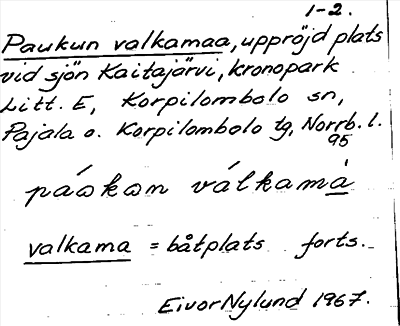 1-2.
Paukun valkamaa, uppröjd plats
vid sjön Kaitajärvi, kronopark
Litt. E, Korpilombolo sn,
Pajala o. Korpilombolo tg, Norrb. l.
95
páokon válkamà
valkama = båtplats forts.
Eivor Nylund 1967.